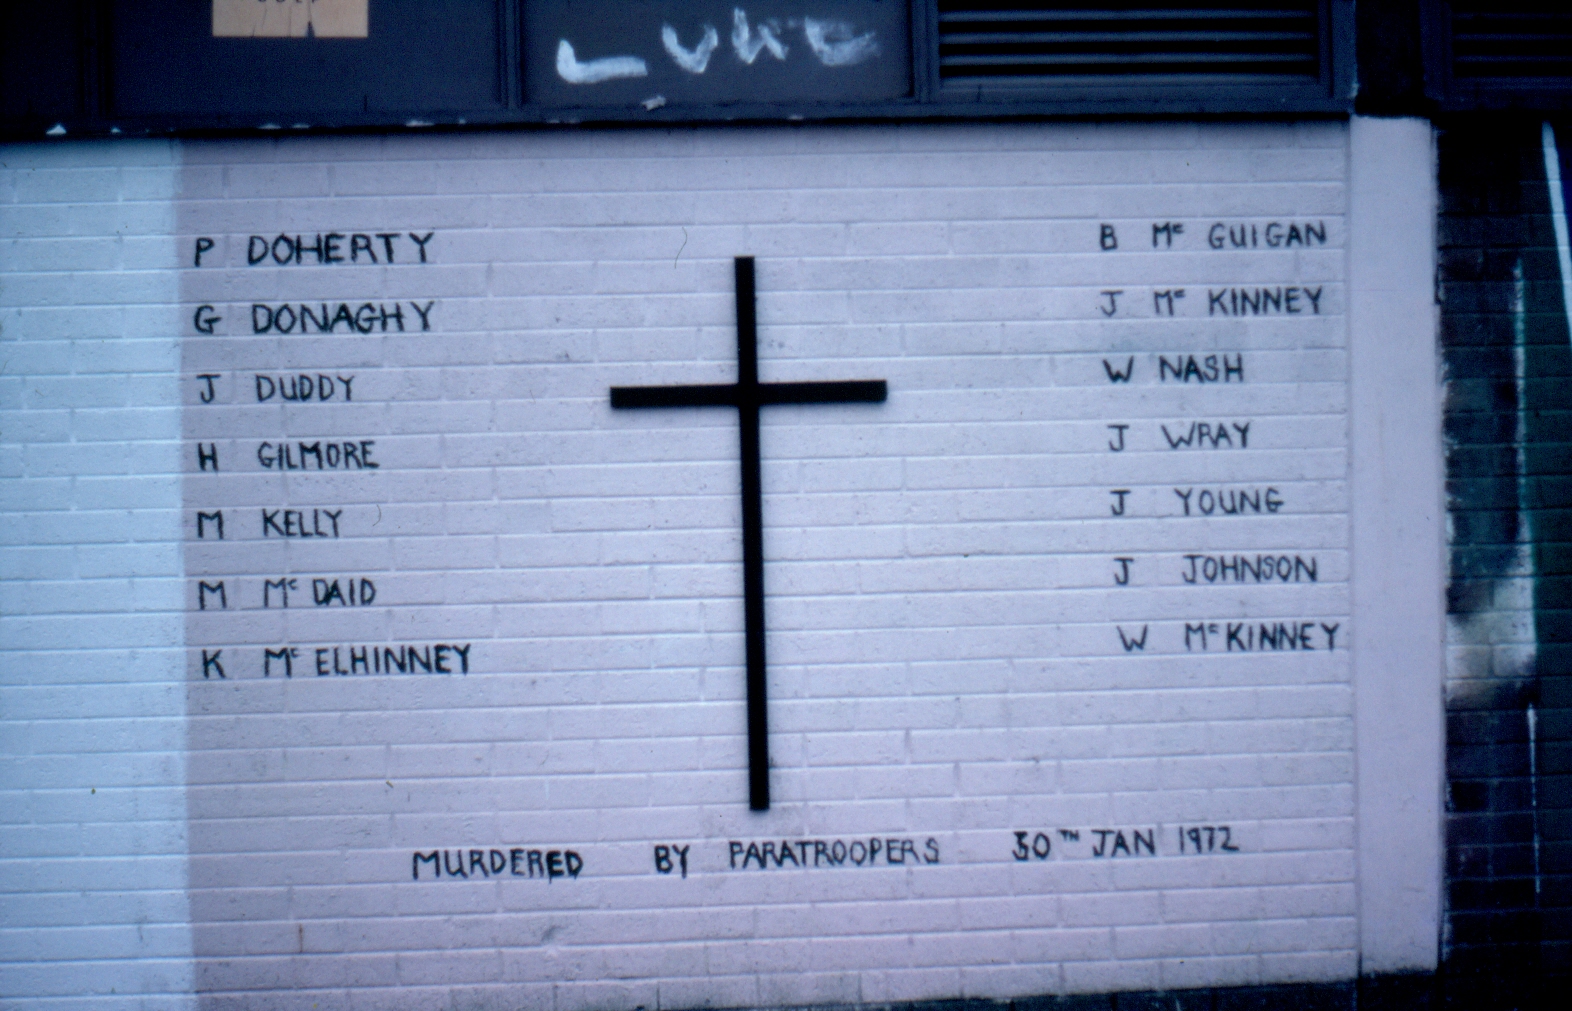 LUKE
P DOHERTY
G DONAGHY
J DUDDY
H GILMORE
M KELLY
M Mc DAID
K Mc ELHINNEY
B Mc GUIGAN
J Mc KINNEY
W NASH
J WRAY
J YOUNG
J JOHNSON
W McKINNEY
MURDERED BY PARATROOPERS 30TH JAN 1972